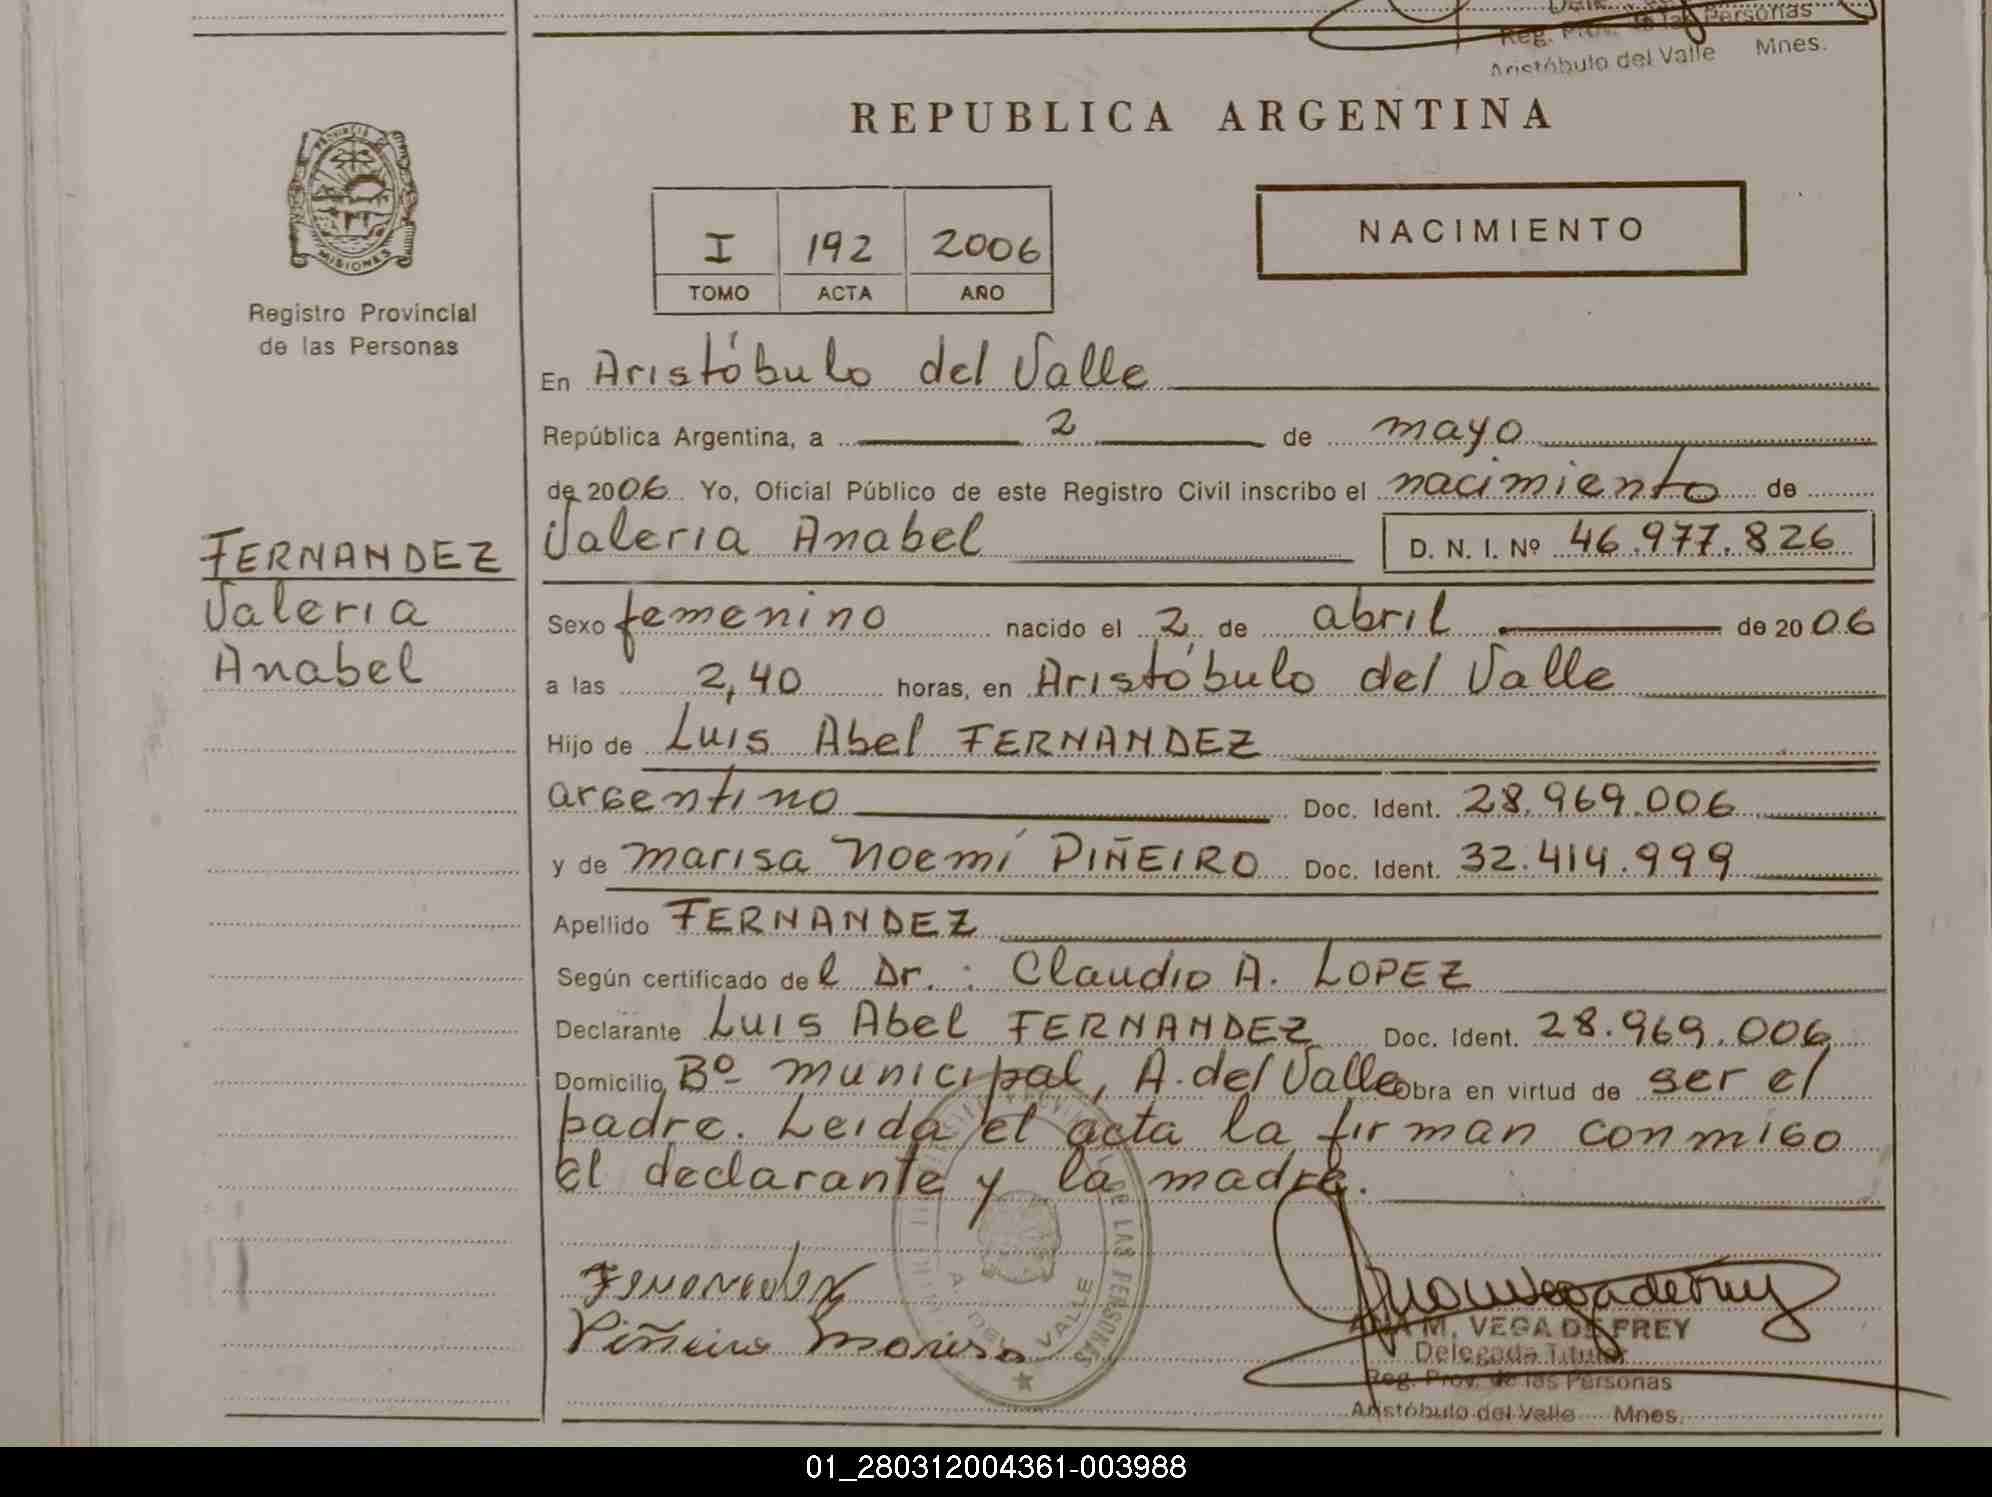 Reg. Prov. de las Personas
Aristóbulo del Valle Mnes.
REPUBLICA ARGENTINA
PROVINCIA
MISIONES
Registro Provincial
de las Personas
I 192 2006
TOMO ACTA AÑO
NACIMIENTO
En Aristóbulo del Valle
República Argentina, a 2 de mayo
de 2006 Yo, Oficial Público de este Registro Civil inscribo el nacimiento de
Valeria Anabel D. N. I. Nº 46.977.826
FERNANDEZ
Valeria
Anabel
Sexo femenino nacido el 2 de abril de 2006
a las 2,40 horas, en Aristóbulo del Valle
Hijo de Luis Abel FERNANDEZ
argentino Doc. Ident. 28.969.006
y de Marisa Noemí PIÑEIRO Doc. Ident. 32.414.999
Apellido FERNANDEZ
Según certificado del Dr.: Claudio A. LOPEZ
Declarante Luis Abel FERNANDEZ Doc. Ident. 28.969.006
Domicilio Bº Municipal, A. del Valle Obra en virtud de ser el
padre. Leida el acta la firman conmigo
el declarante y la madre.
DE LAS PERSONAS
A. DEL VALLE
Fernandez
Piñeiro Marisa
ANA M. VEGA DE FREY
Delegada Titular
Reg. Prov. de las Personas
Aristóbulo del Valle Mnes.
01_280312004361-003988